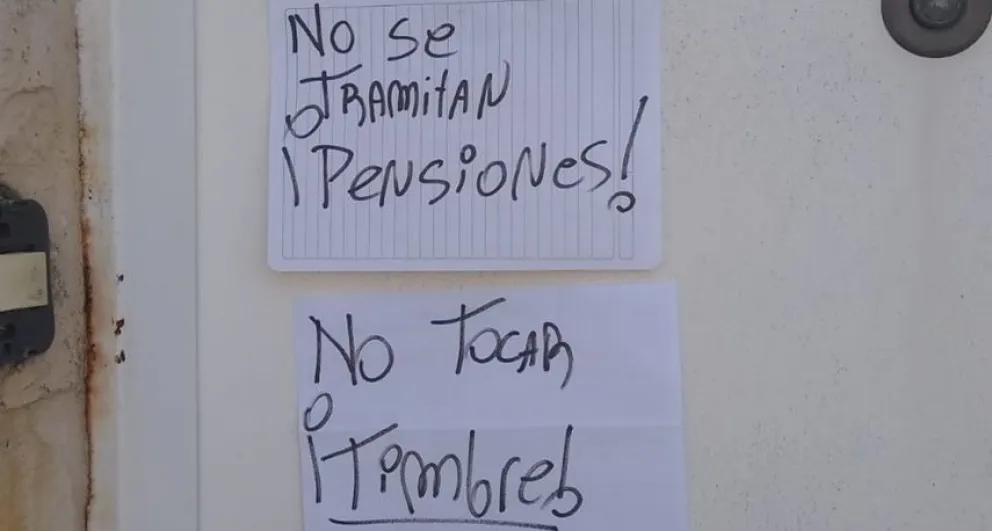 No se
TRAMitAN
¡PeNsioNes!
No TocAR
¡Timbre!